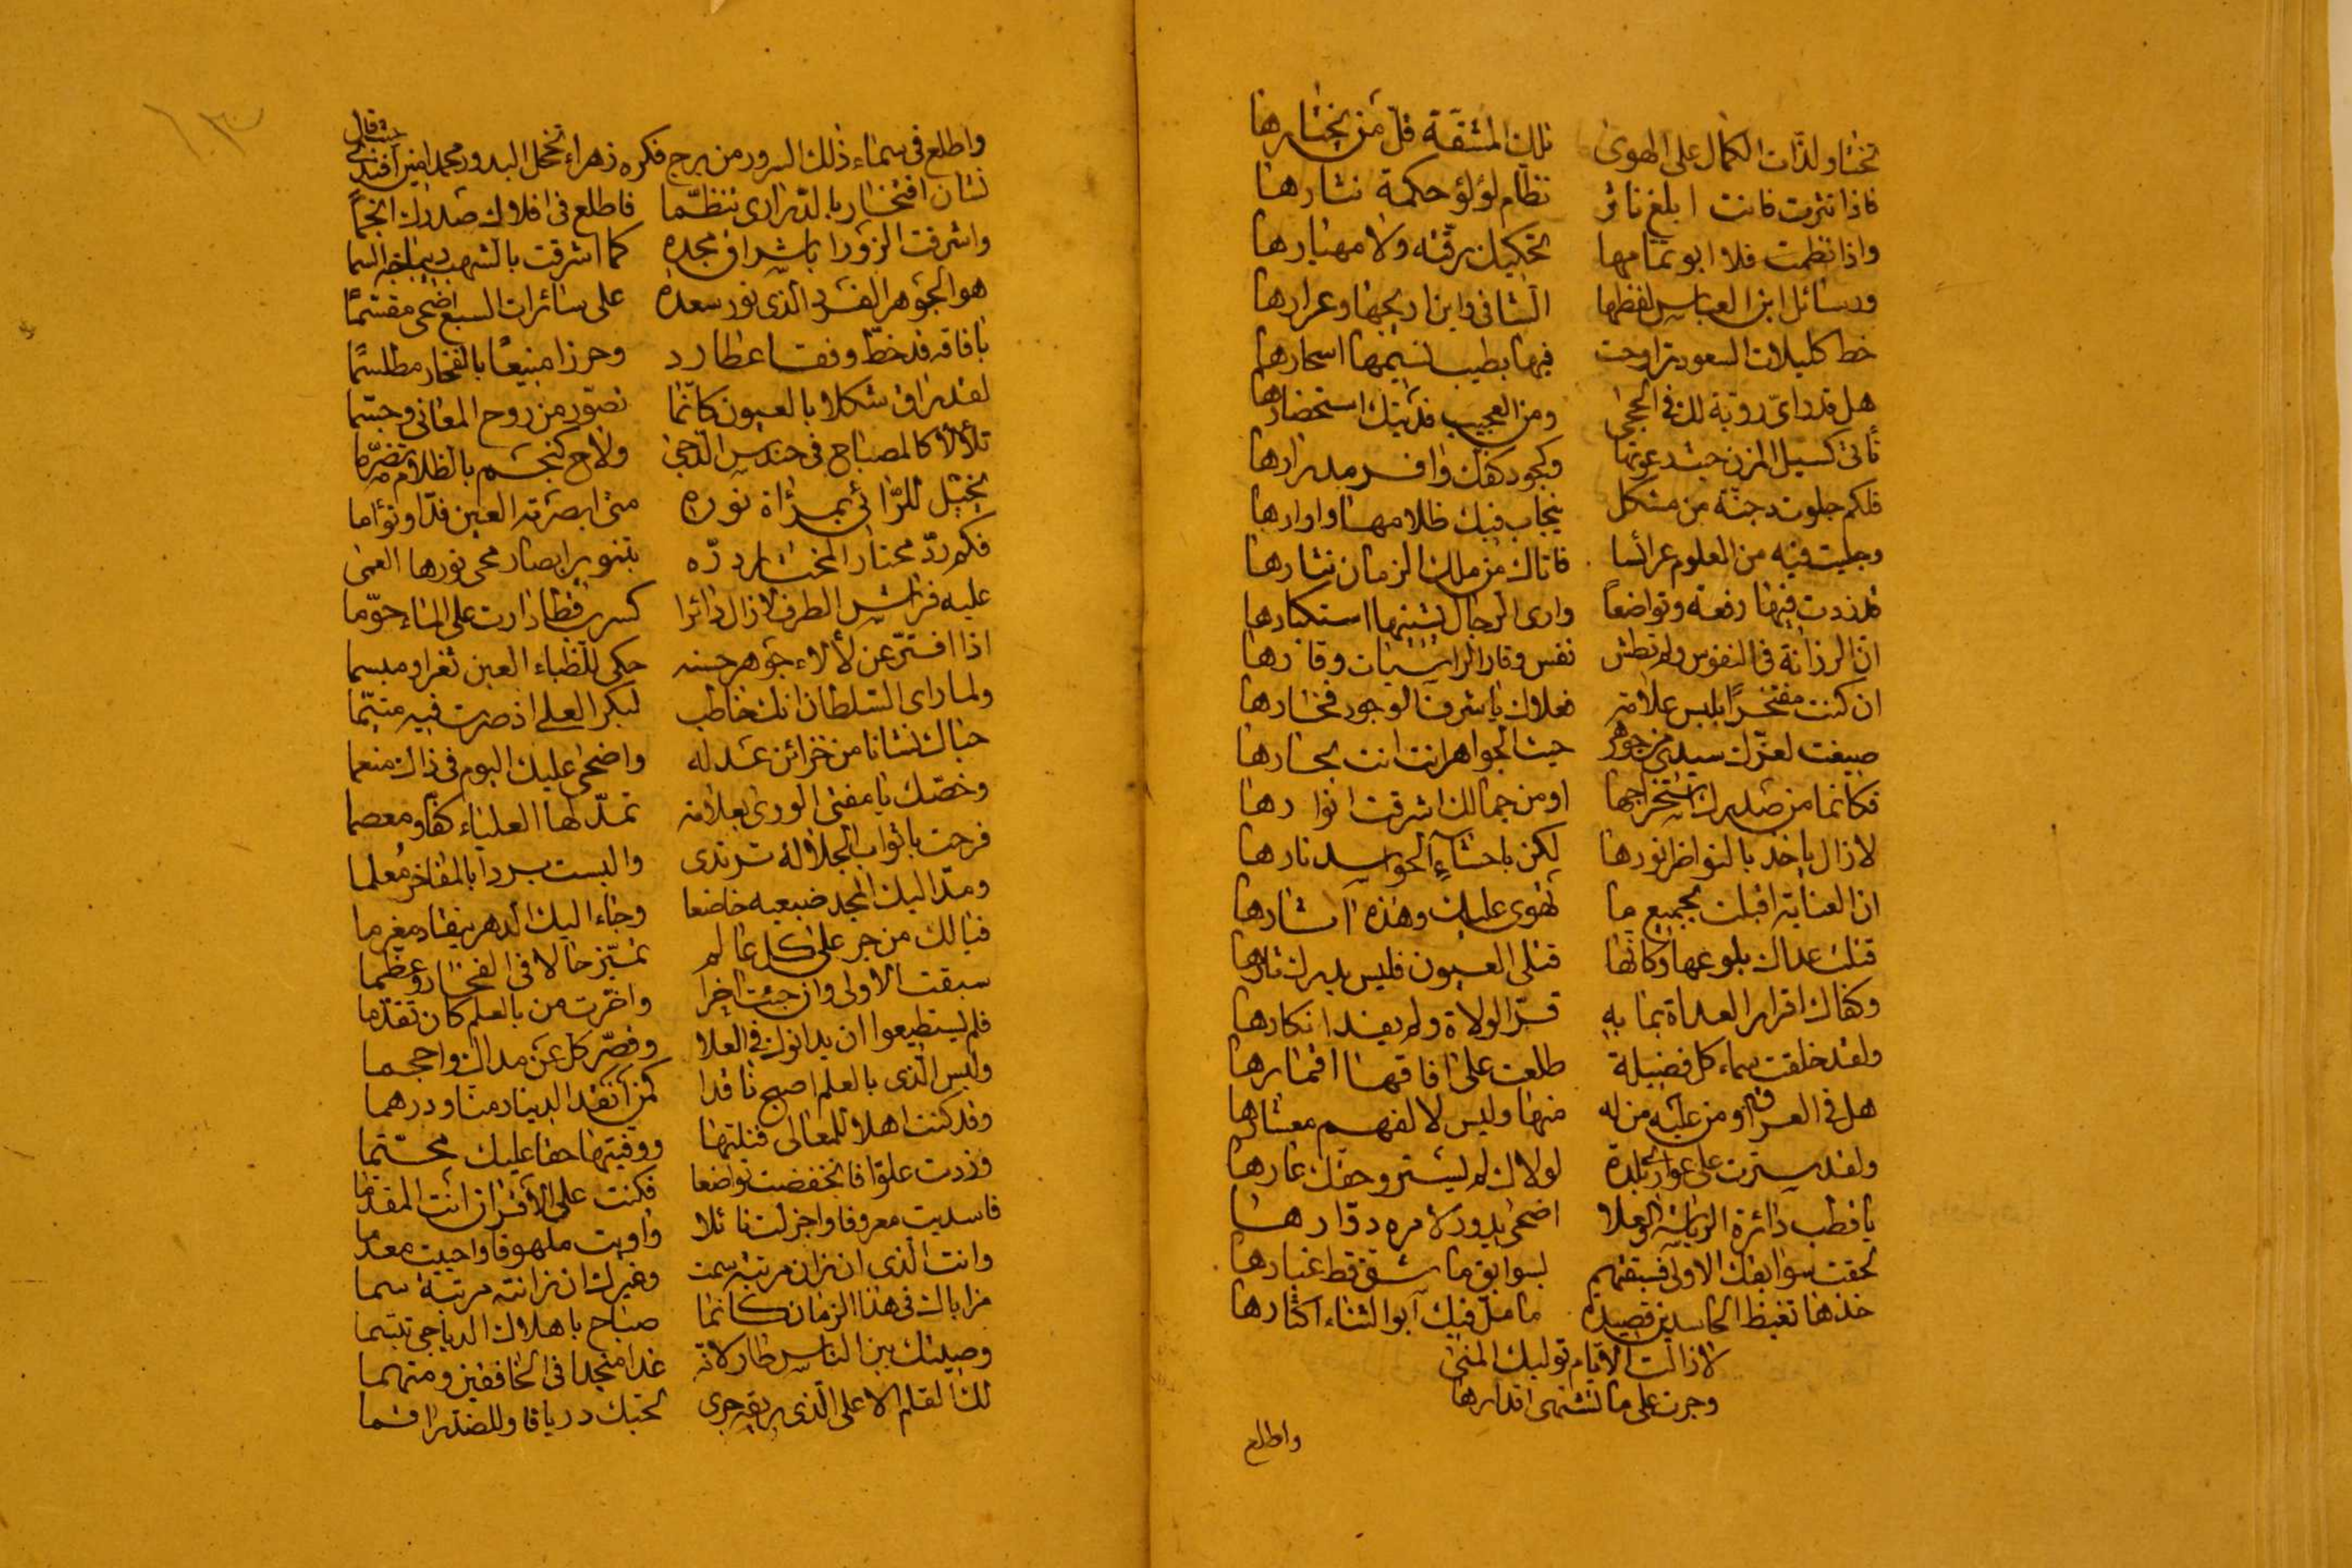 تختار لذّات الكمال على الهوى تلك المشقّة قلّ من يختارها
فاذا نثرت فانت ابلغ ناثر نظام لؤلؤ حكمة نثارها
واذا نظمت فلا ابو تمامها تحكيك رقّته ولا مهيارها
ورسائل ابن العباس لفظها الشافى وابن اريجها وعرارها
خط كليلات السعود تراوحت فيها بطيب نسيمها اسحارها
هل قد رأى روية لك في الحجى ومن العجيب فديتك استحضارها
تأتى كسيل المزن حيث دعوتها وكجود كفك وافر مدرارها
فلكم جلوت دجنّة من مشكل ينجاب فيك ظلامها واوارها
وجليت فيه من العلوم عرائسا فاتاك من ملك الزمان نثارها
فازددت فيها رفعة وتواضعاً وارى الرجال يشينها استكبارها
انّ الرزانة في النفوس ولم تطش نفس وقار الراسيات وقارها
ان كنت مفتخراً بلبس علامة فعلاك يا شرف الوجود فخارها
صيغت لعزّك سيدى من جوهر حيث الجواهر انت انت بحارها
فكانما من صدرك استخراجها او من جمالك اشرقت انوارها
لا زال ياخذ بالنواظر نورها لكن باحشاء الحواسد نارها
ان العناية اقبلت بجميع ما تهوى عليك وهذه آثارها
قتلت عداك بلوعها وكانها قتلى العيون فليس يدرك ثارها
وكفاك اقرار العداة بما به قرّ الولاة ولم يفد انكارها
ولقد خلقت سماء كل فضيلة طلعت على افاقها اقمارها
هل في العراق ومن عليه من له منها وليس لا لفهم معشارها
ولقد سترت على عوار بلدة لولاك لم يستر وحقك عارها
يا قطب دائرة الرياسة والعلا اضحى يدور لامره دوّارها
لحقت سوابقك الاولى فسبقتهم بسوابق ما شق قط غبارها
خذها تغيظ الحاسدين قصيدة ما ملّ فيك ابو الثناء اكثارها
لا زالت الايام توليك المنى
وجرت على ما تشتهى اقدارها
واطلع
واطلع فى سماء ذلك السرور من برج فكره زهراء تخجل البدور محمد امين افندى حيث قال
نشان افتخار بالدرارى تنظّما فاطلع فى افلاك صدرك انجماً
واشرقت الزورا باشراق مجده كما اشرقت بالشهب ديباجة السما
هو الجوهر الفرد الذى نور سعده على سائرات السبع اضحى مقسّماً
بافاقه قد خطّ وفقا عطارد وحرزا منيعاً بالفخار مطلسماً
لقد راق شكلا بالعيون كانّما تصوّر من روح المعانى وجسّما
تلألأ كالمصباح فى حندس الدجى ولاح كنجم بالظلام تضرّما
يخيّل للرّائى بمرآة نوره متى ابصرته العين فذّا وتوأما
فكم ردّ محتار المختار درّه بتنوير ابصار محى نورها العمى
عليه فراش الطرف لا زال دائرا كسرب قطا دارت على الماء حوّما
اذا افترّ عن لألاء جوهر حسنه حكى للظباء العين ثغرا ومبسما
ولما راى السلطان انك خاطب لبكر العلى اذ صرت فيه متيّما
حباك نشانا من خزائن عدله واضحى عليك اليوم فى ذاك منعما
وخصّك يا مفتى الورى بعلامة تمدّ لها العلياء كفّا ومعصما
فرحت باثواب الجلالة ترتدى والبست بردا بالمفاخر مُعلما
ومدّ اليك المجد ضبعيه خاضعا وجاء اليك الدهر ينقاد مغرما
فيا لك من حبر على كل عالم تميّز حالا فى الفخار وعظّما
سبقت الاولى وان جئت اخرا واخّرت من بالعلم كان تقدّما
فلم يستطيعوا ان يدانوك فى العلا وقصّر كل عن مداك واحجما
وليس الّذى بالعلم اصبح ناقدا كمن نقد الدينار منّا ودرهما
وقد كنت اهلا للمعالى فنلتها ووفيتها حقا عليك محتّما
وزدت علوّا فانخفضت تواضعا فكنت على الاقران انت المقدّما
فاسديت معروفا واجزلت نائلا واويت ملهوفا واحييت معدما
وانت الّذى ان زان مرتبة سمت وغيرك ان زانته مرتبة سما
مزاياك فى هذا الزمان كانّما صباح باهلاك الدياجى تبسّما
وصيتك بين الناس طار لانّه غدا منجدا فى الخافقين ومتهما
لك القلم الاعلى الّذى ريقه جرى لحبّك درياقا وللضدّ ارقما